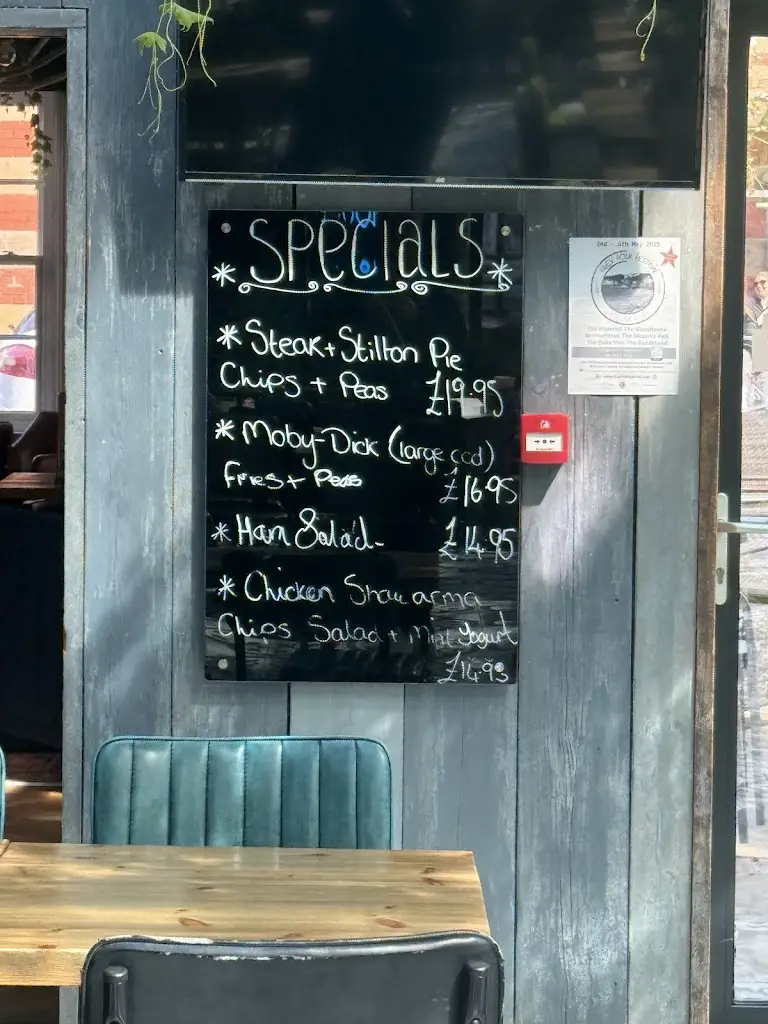 SPECIALS
* Steak + Stilton Pie
Chips + Peas £19.95
* Moby-Dick (large cod)
Fries + Peas £16.95
* Ham Salad - £14.95
* Chicken Shawarma
Chips Salad + Mint Yogurt
£14.95
2nd - 6th May 2025
FOLK FESTIVAL